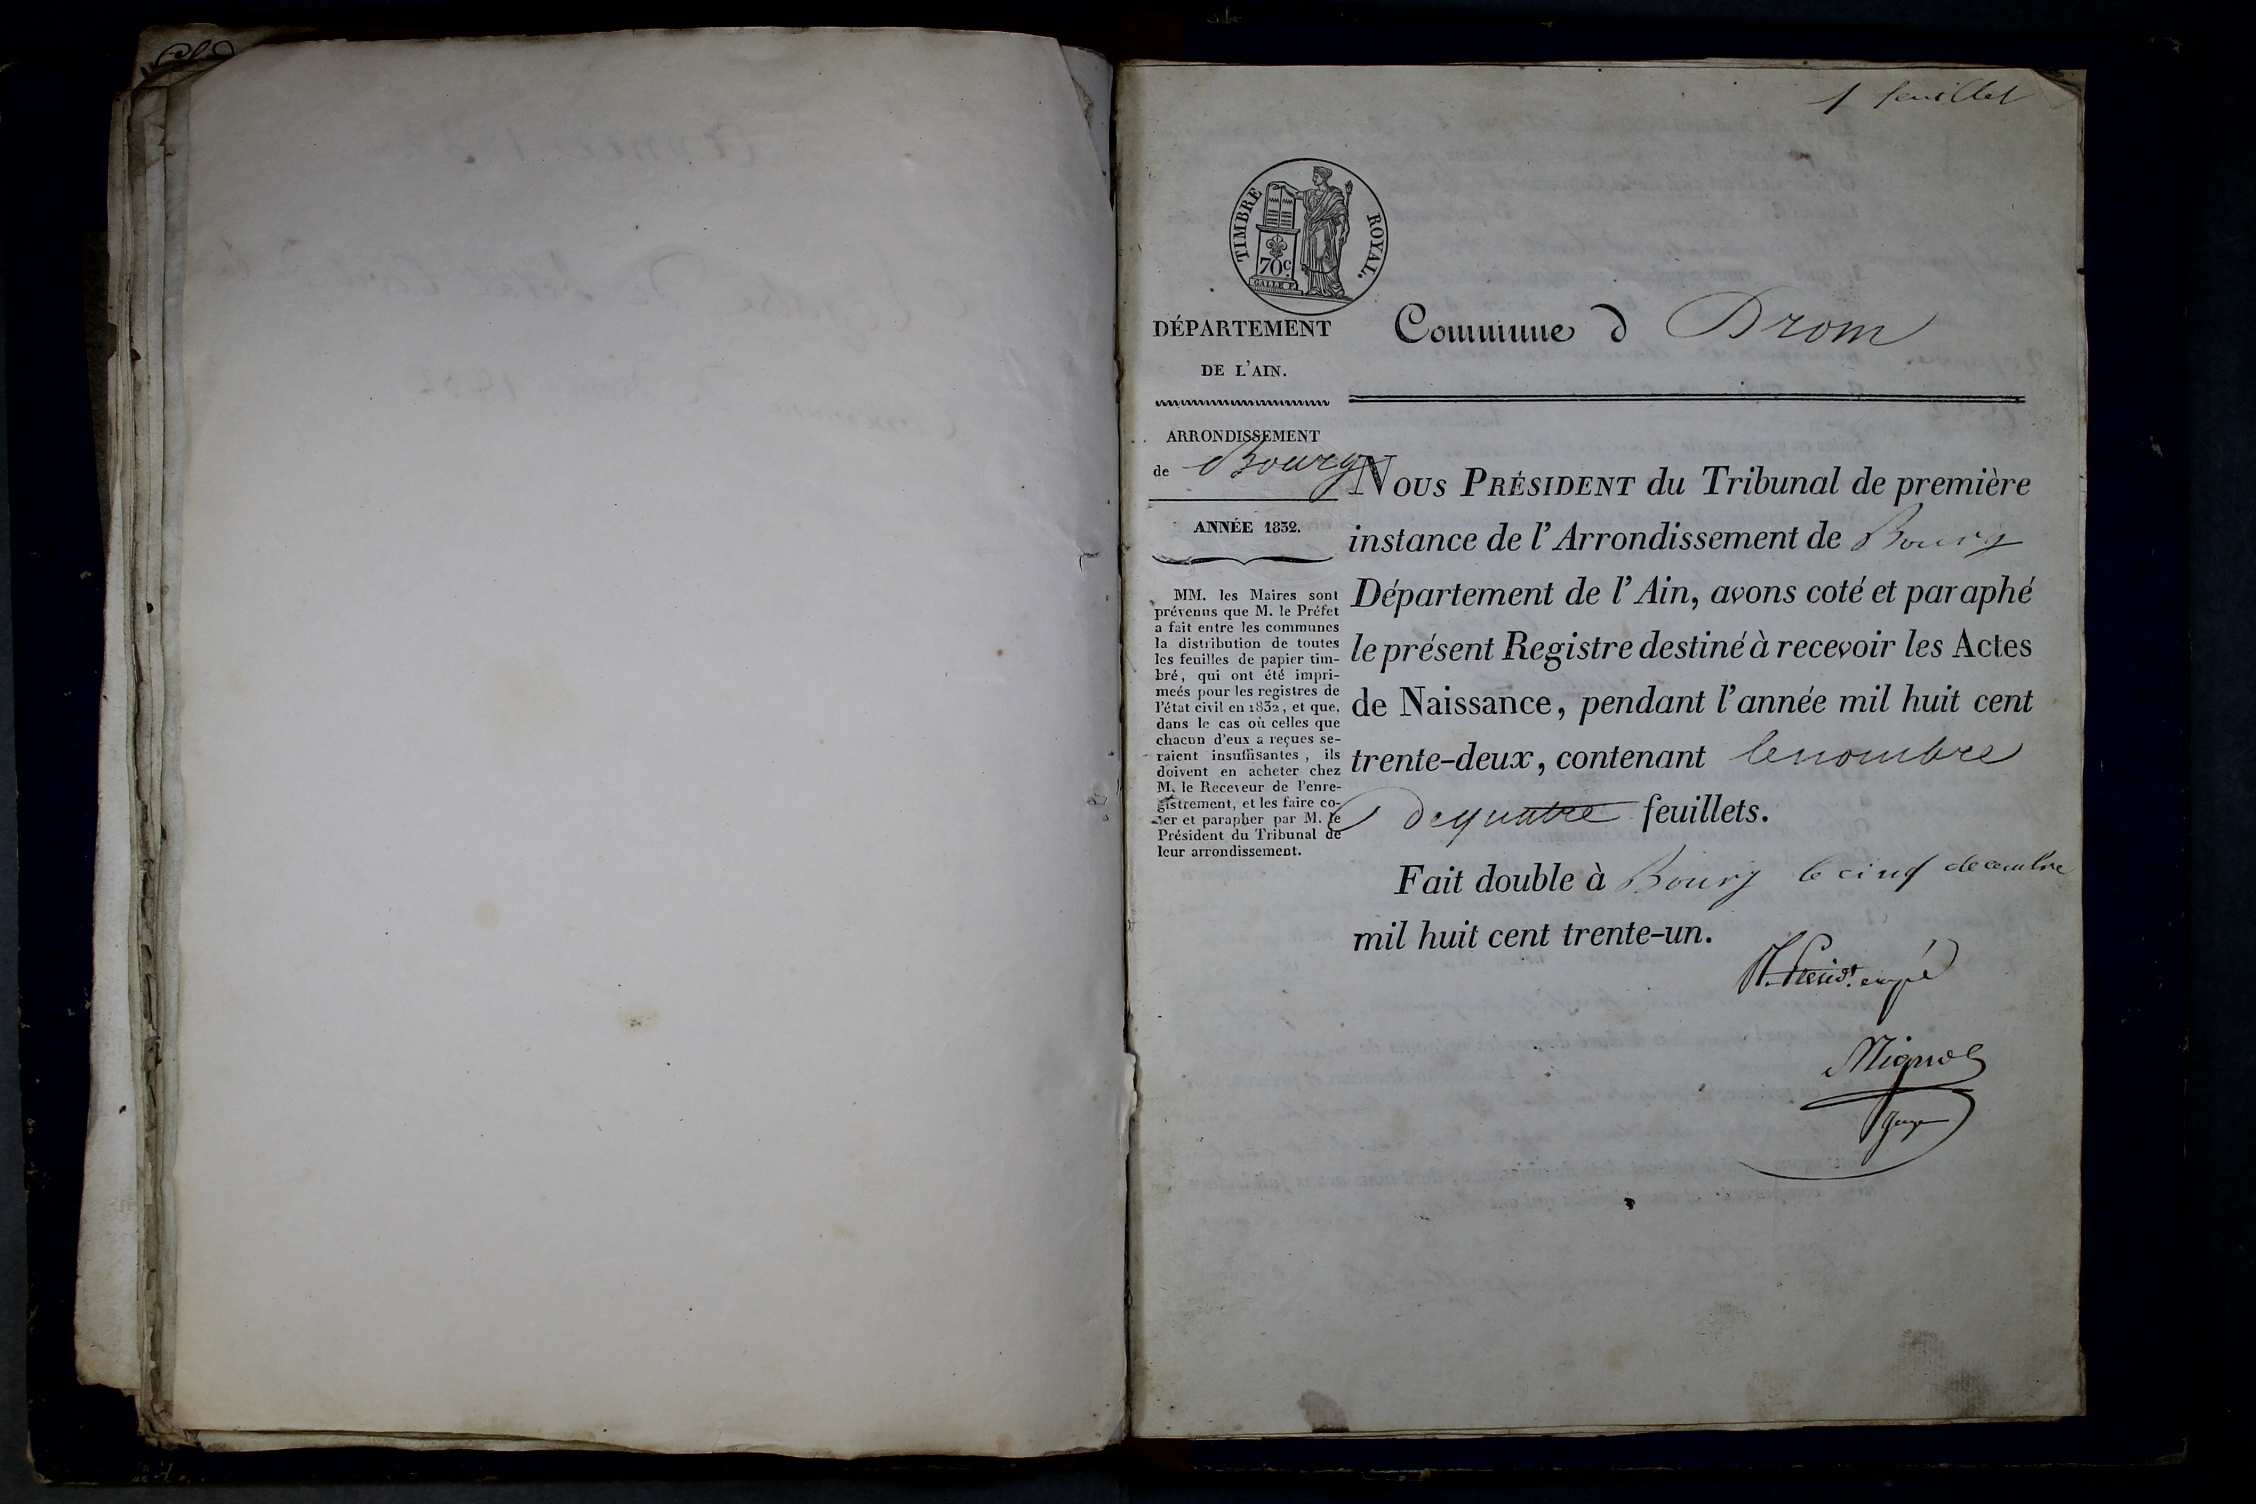 1 feuillet
TIMBRE ROYAL.
70c
GALLE F.
DÉPARTEMENT
DE L'AIN.
ARRONDISSEMENT
de Bourg
ANNÉE 1832.
MM. les Maires sont
prévenus que M. le Préfet
a fait entre les communes
la distribution de toutes
les feuilles de papier tim-
bré, qui ont été impri-
meés pour les registres de
l'état civil en 1832, et que,
dans le cas où celles que
chacun d'eux a reçues se-
raient insuffisantes, ils
doivent en acheter chez
M. le Receveur de l'enre-
gistrement, et les faire co-
ter et parapher par M. le
Président du Tribunal de
leur arrondissement.
Commune d Drom
NOUS PRÉSIDENT du Tribunal de première
instance de l'Arrondissement de Bourg
Département de l'Ain, avons coté et paraphé
le présent Registre destiné à recevoir les Actes
de Naissance, pendant l'année mil huit cent
trente-deux, contenant le nombre
de quatre feuillets.
Fait double à Bourg le cinq decembre
mil huit cent trente-un.